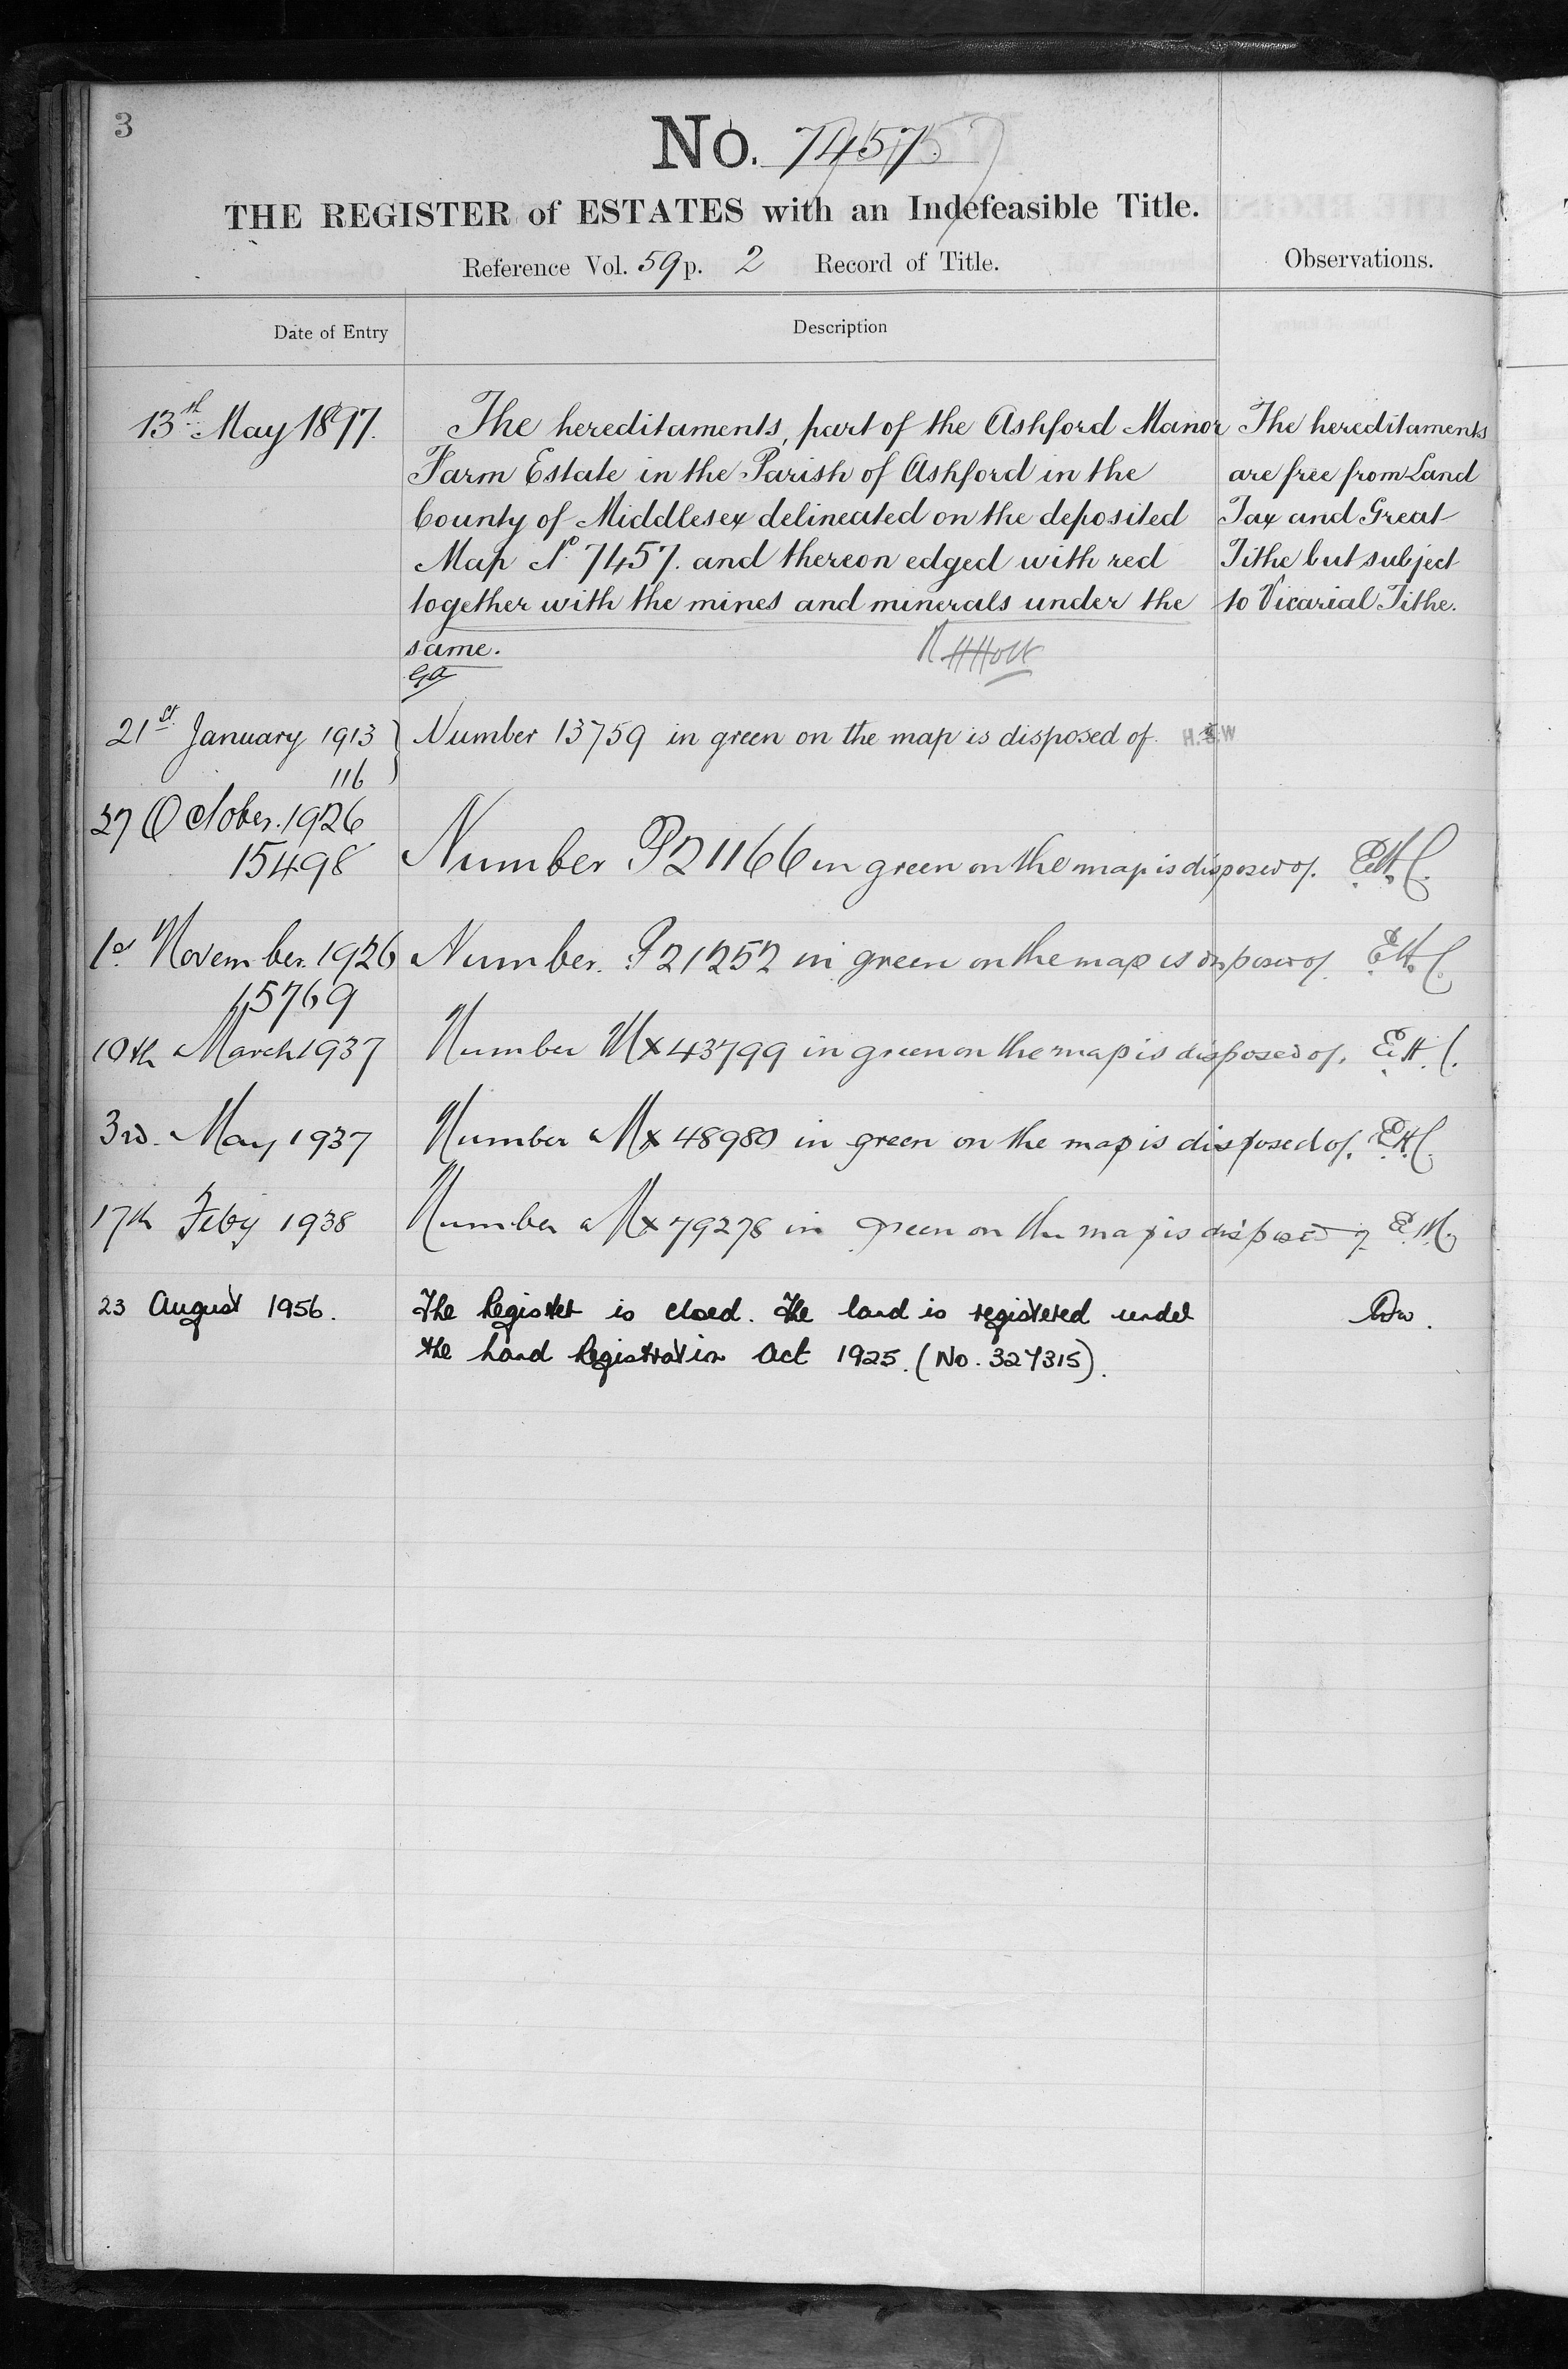 3
No. 7457.
THE REGISTER of ESTATES with an Indefeasible Title.
Reference Vol. 59 p. 2 Record of Title.
Observations.
Date of Entry
Description
13th May 1897.
The hereditaments, part of the Ashford Manor
Farm Estate in the Parish of Ashford in the
County of Middlesex delineated on the deposited
Map No 7457. and thereon edged with red
together with the mines and minerals under the
same.
The hereditaments
are free from Land
Tax and Great
Tithe but subject
to Vicarial Tithe.
R H Holt
21st January 1913
116
Number 13759 in green on the map is disposed of
27 October. 1926
15498
Number P21166 in green on the map is disposed of. E.H.C.
1st November. 1926
15769
Number. P21252 in green on the map is disposed of. E.H.C.
10th March 1937
Number Mx43799 in green on the map is disposed of. E.H.C.
3rd. May 1937
Number Mx 48980 in green on the map is disposed of. E.H.C.
17th Feby 1938
Number Mx79278 in green on the map is disposed of
23 August 1956.
The Register is closed. The land is registered under
the Land Registration Act 1925. (No. 327315).